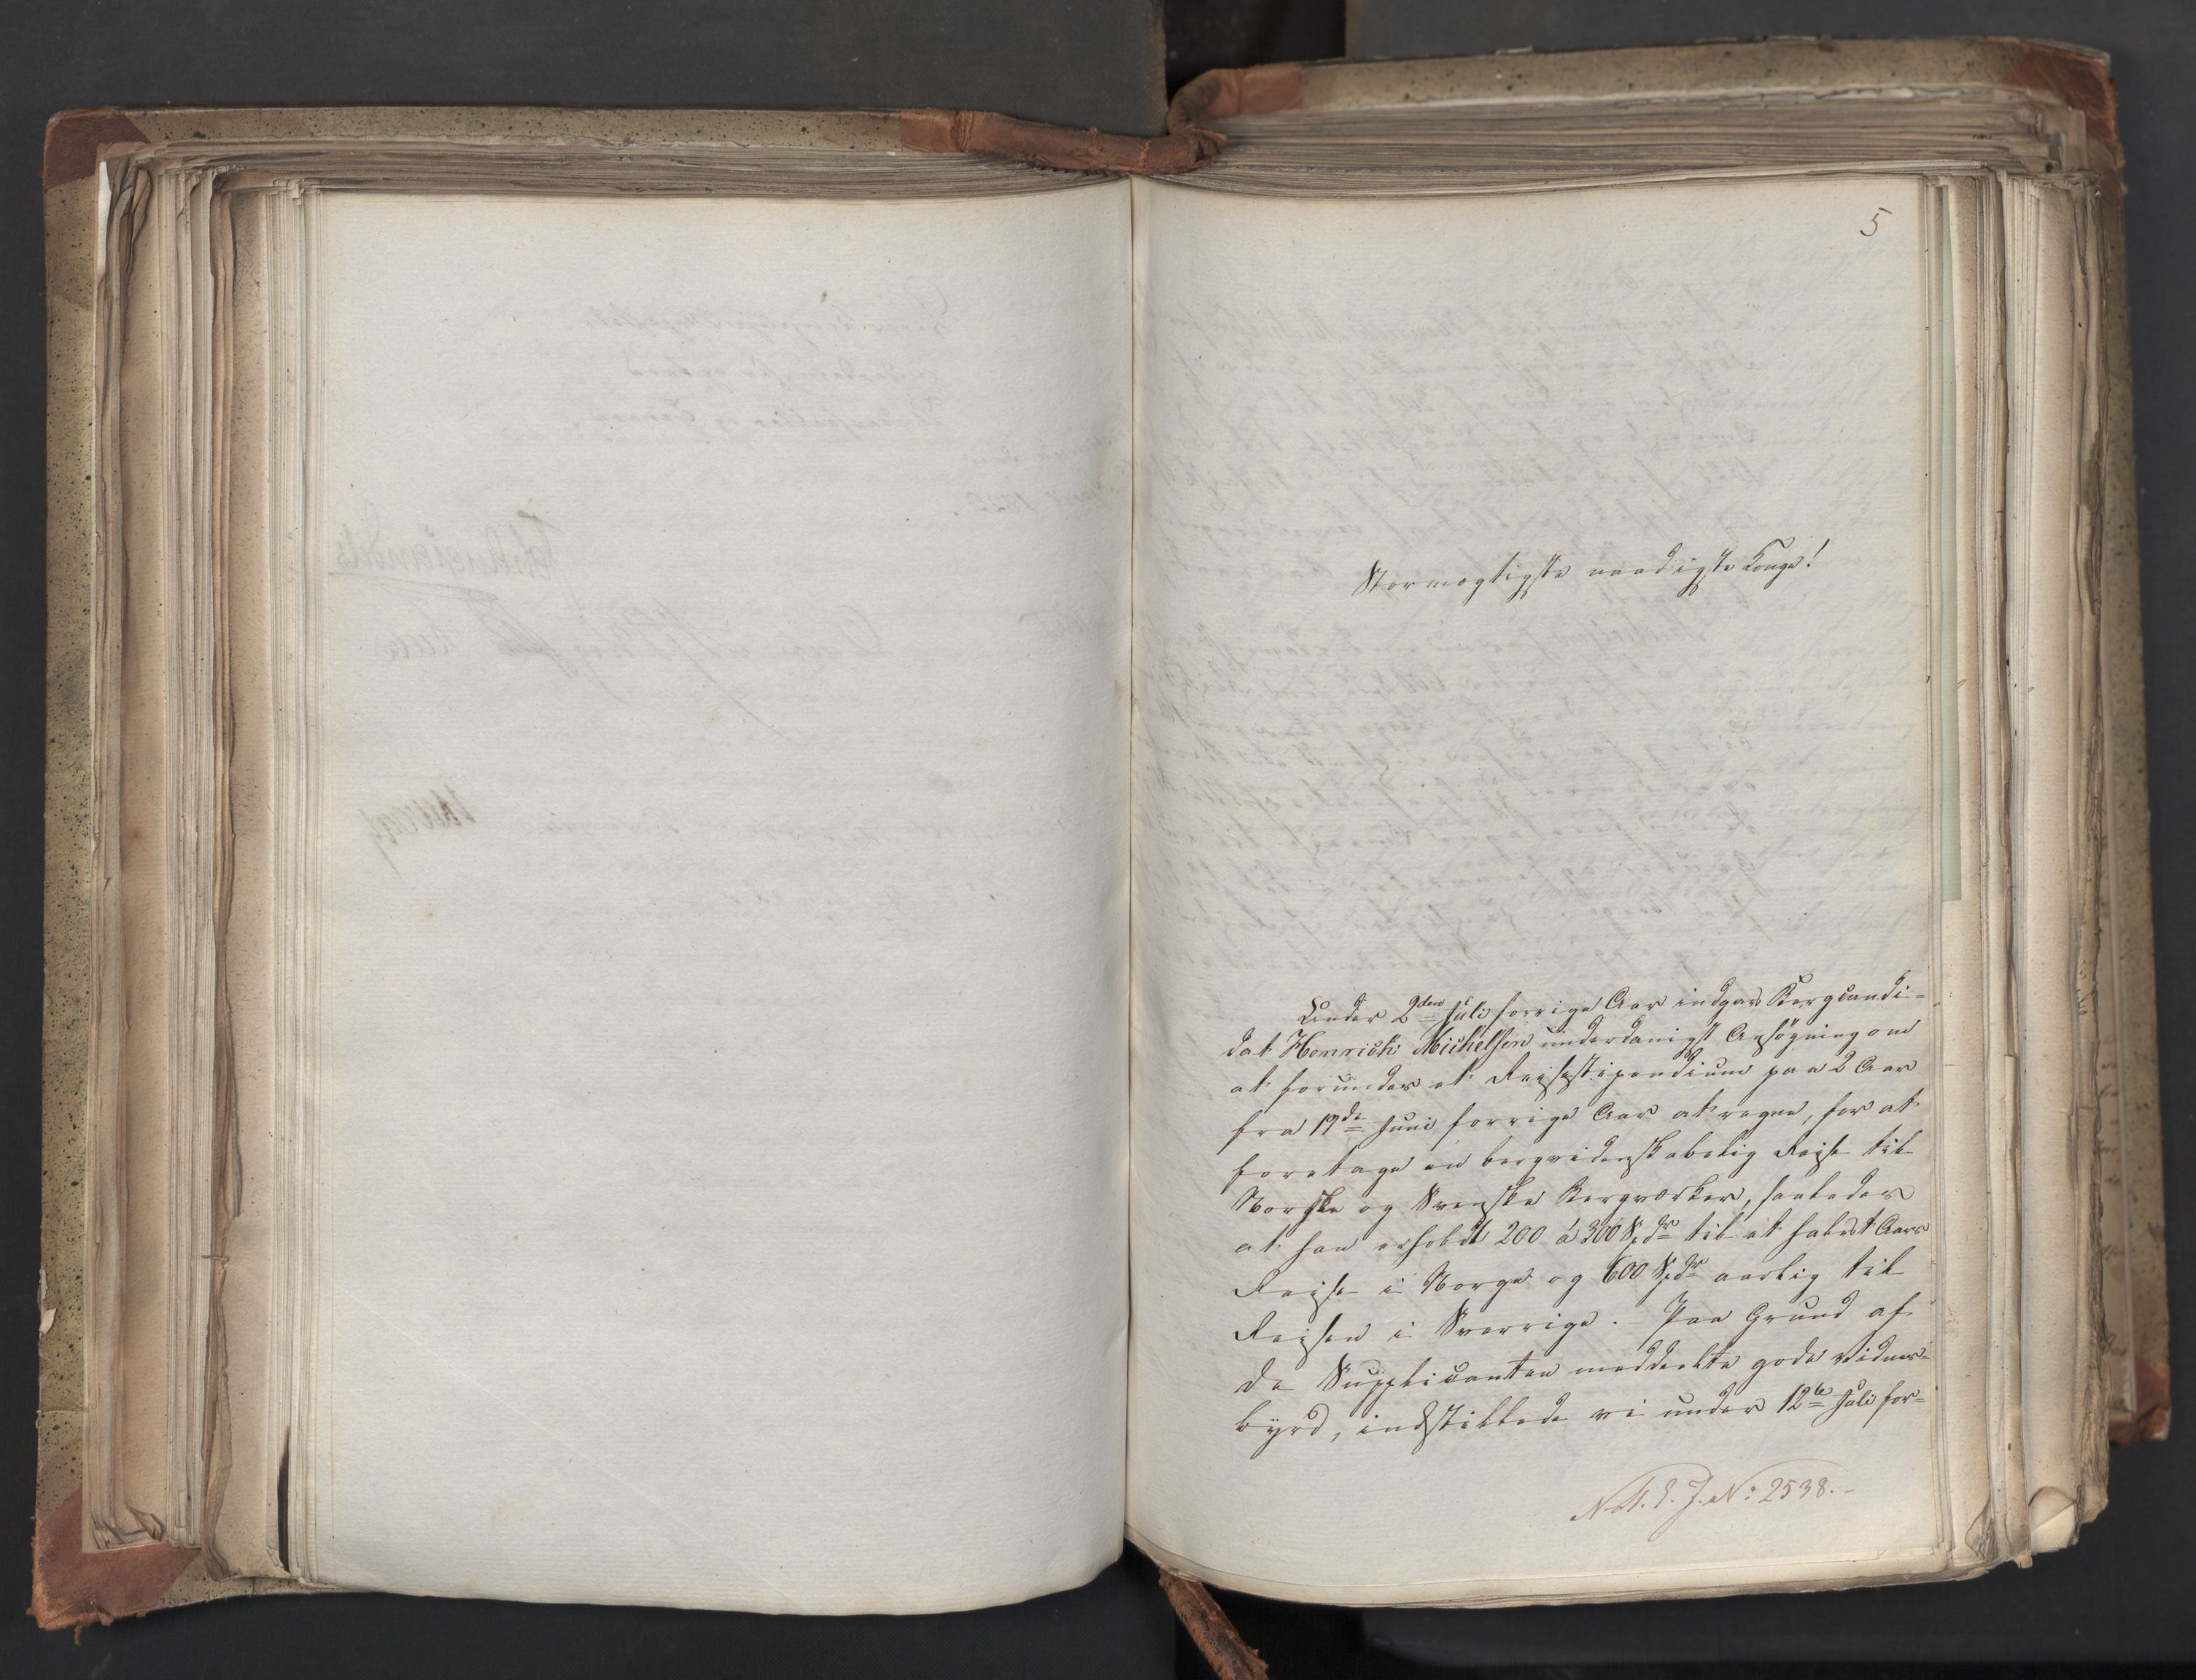 5
Stormægtigste naadigste Konge!
Under 2den Juli forrige Aar indgav Bergcandi-
dat Henrich Michelsen underdanigst Ansøgning om
at forundes et Reisestipendium paa 2 Aar
fra 19de Juni forrige Aar at regne, for at
foretage en bergvidenskabelig Reise til
Norske og Svenske Bergværker, saaledes
at han erholdt 200 á 300 Spdr til et halvt Aars
Reise i Norge og 600 Spdr aarlig til
Reisen i Sverrige. - Paa Grund af
de Supplicanten meddeelte gode Vidnes-
byrd, indstillede vi under 12te Juli for-
No. 2538.-